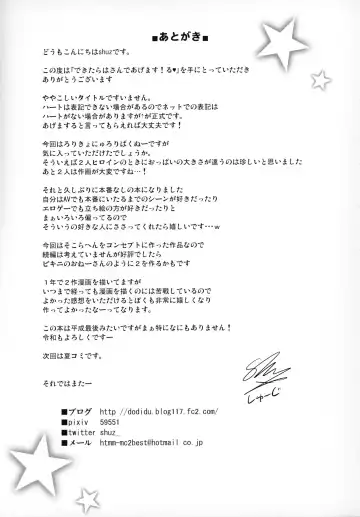 ■あとがき■
どうもこんにちはshuzです。
この度は『できたらはさんであげます!る♥』を手にとっていただき
ありがとうございます
ややこしいタイトルですいません。
ハートは表記できない場合があるのでネットでの表記は
ハートがない場合がありますが♥が正式です。
あげますると言ってもらえれば大丈夫です!
今回はろりきょにゅろりばくねーですが
気に入っていただけたでしょうか。
そういえば2人ヒロインのときにおっぱいの大きさが違うのは珍しいと思いました
あと2人は作画が大変ですね…!
それと久しぶりに本番なしの本になりました
自分はAVでも本番にいたるまでのシーンが好きだったり
エロゲーでも立ち絵の方が好きだったりと
まぁいろいろ偏ってるので
そういうの好きな人にささってくれたら嬉しいです…w
今回はそこらへんをコンセプトに作った作品なので
続編は考えていませんが好評でしたら
ビキニのおねーさんのように2を作るかもです
1年で2作漫画を描いてますが
いつまで経っても漫画を描くのには苦戦しているので
よかった感想をいただけるとぼくも非常に嬉しくなり
作ってよかったなーってなります。
この本は平成最後みたいですがまぁ特になにもありません!
令和もよろしくですー
次回は夏コミです。
それではまたー
しゅーじ
■ブログ http://dodidu.blog117.fc2.com/
■pixiv 59551
■twitter shuz_
■メール htmm-mc2best@hotmail.co.jp